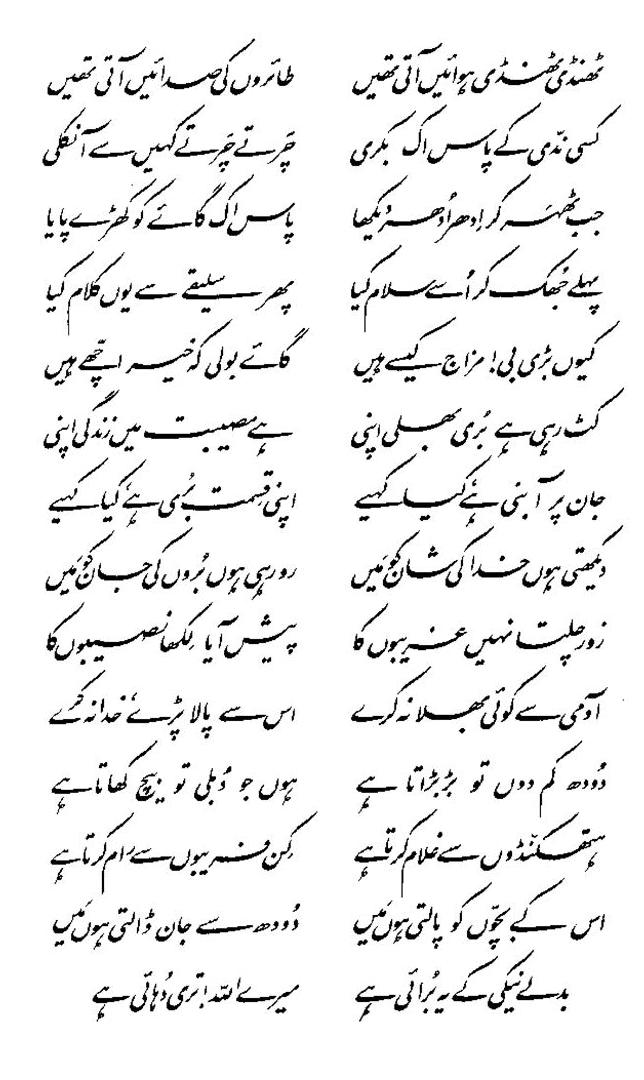 ٹھنڈی ٹھنڈی ہوائیں آتی تھیں طائروں کی صدائیں آتی تھیں
کسی ندّی کے پاس اک بکری چَرتے چَرتے کہیں سے آ نکلی
جب ٹھہَر کر اِدھر اُدھر دیکھا پاس اک گائے کو کھڑے پایا
پہلے جُھک کر اُسے سلام کیا پھر سلیقے سے یوں کلام کیا
کیوں بڑی بی! مزاج کیسے ہیں گائے بولی کہ خیر اچھّے ہیں
کٹ رہی ہے بُری بھلی اپنی ہے مصیبت میں زندگی اپنی
جان پر آ بنی ہے، کیا کہیے اپنی قِسمت بُری ہے، کیا کہیے
دیکھتی ہوں خدا کی شان کو مَیں رو رہی ہوں بُروں کی جان کو مَیں
زور چلتا نہیں غریبوں کا پیش آیا لِکھا نصیبوں کا
آدمی سے کوئی بھلا نہ کرے اس سے پالا پڑے، خدا نہ کرے
دُودھ کم دوں تو بڑبڑاتا ہے ہوں جو دُبلی تو بیچ کھاتا ہے
ہتھکنڈوں سے غلام کرتا ہے کِن فریبوں سے رام کرتا ہے
اس کے بچّوں کو پالتی ہوں مَیں دُودھ سے جان ڈالتی ہوں مَیں
بدلے نیکی کے یہ بُرائی ہے میرے اللہ! تری دُہائی ہے